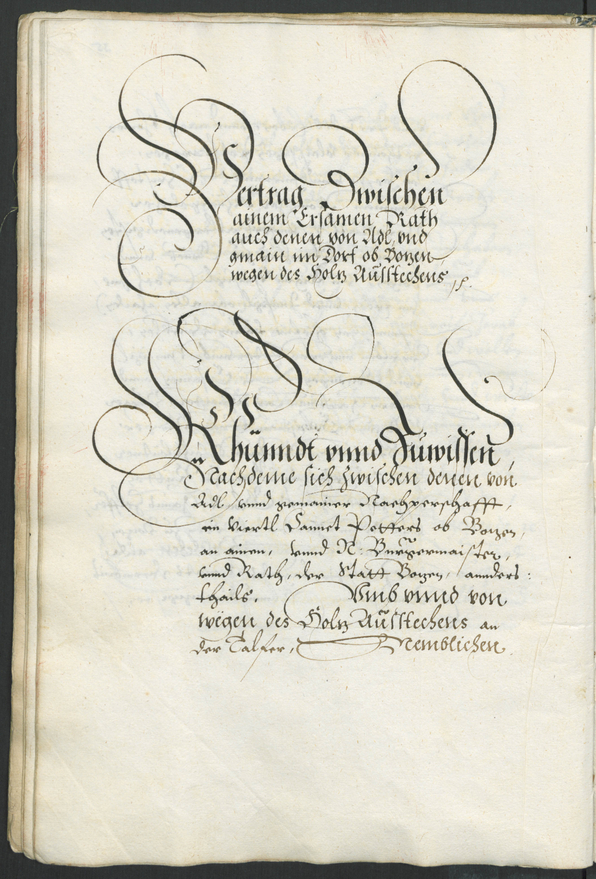 Vertrag Zwischen
ainem Ersamen Rath
auch denen von Adl, vnd
gmain im Dorf ob Bozen
wegen des Holtz Aŭsstechens
Khŭnndt vnnd Zŭwissen,
Nachdeme sich zwischen denen von
Adl, vnnd gemainer Nachperschafft,
im Viertl Sannct Petters ob Bozen,
an ainem, vnnd N: Bŭrgermaister,
vnnd Rath, der Statt Bozen, annders:
thails, Vmb vnnd von
wegen des Holtz Aŭsstechens an
der Talfer, Nemblichen